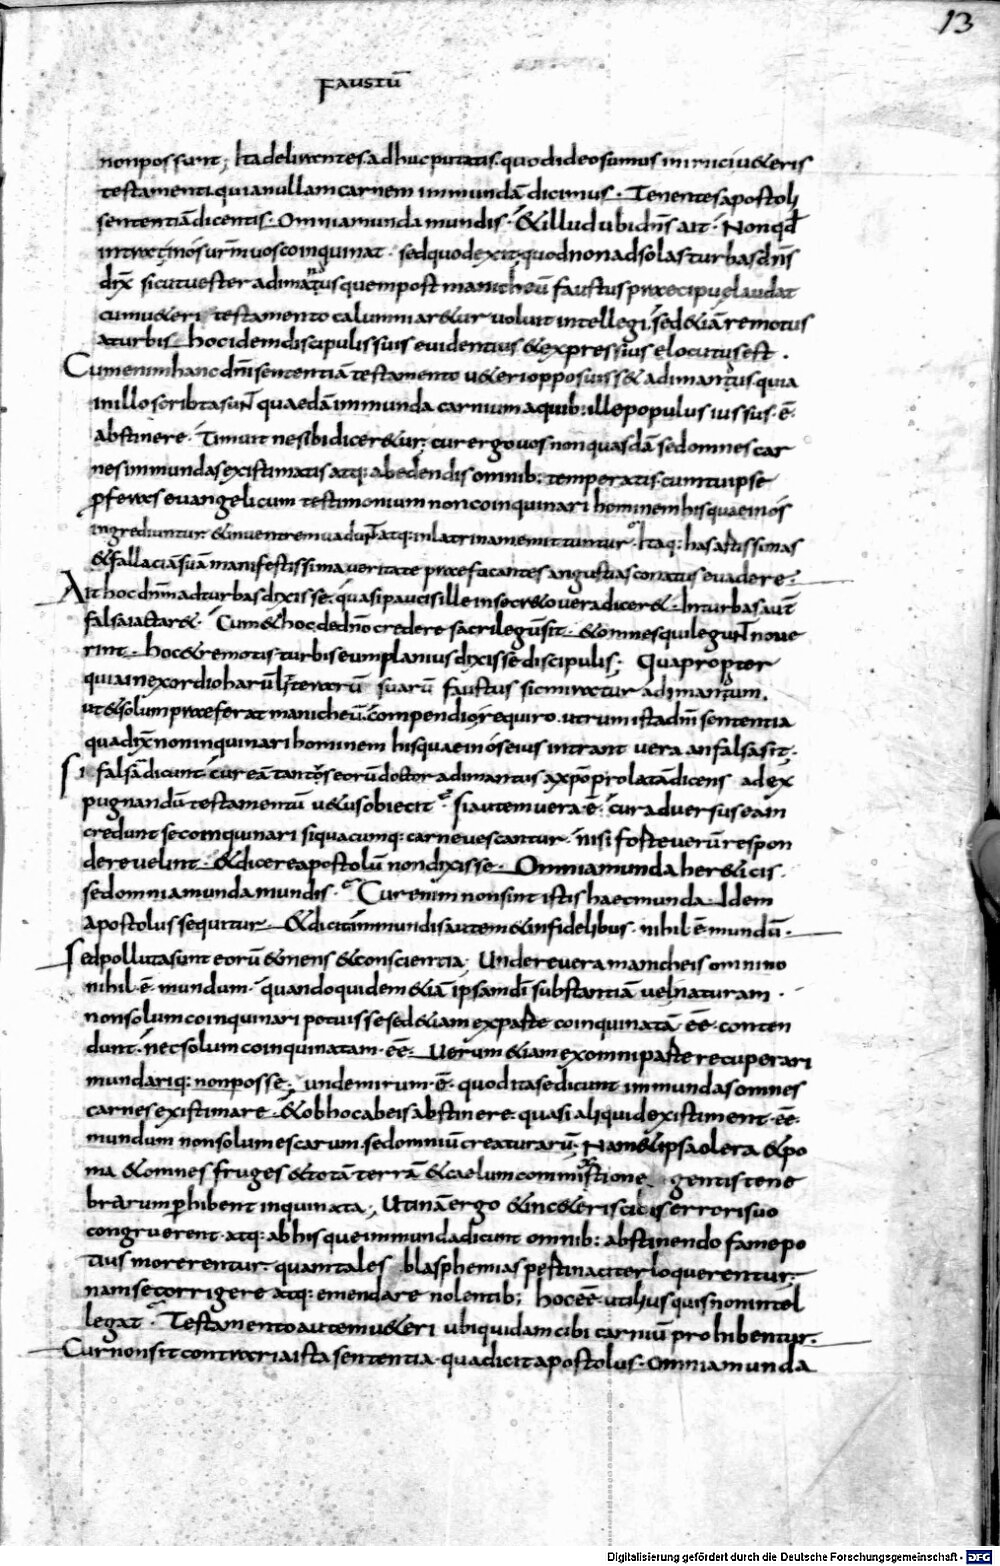 13
FAUSTŪ
non possunt; Ita delirantes adhuc putatis. quod ideo sumus inimici ueteris
testamenti. quia nullam carnem inmundā dicimus. Tenentes apostoli
sententiā dicentis. Omnia munda mundis. & illud ubi dn̄s ait. Non qđ
intrat in ōs urm̄ uos coinquinat. sed quod exit. quod non ad solas turbas dn̄s
dix̄ sicut uester adimantus quem post manicheū faustus praecipue laudat
cum u&eri testamento calumniar&ur uoluit intellegi. sed &iā remotus
a turbis hoc idem discipulis suis euidentius & expressius elocutus est.
Cum enim hanc dn̄i sententiā testamento u&eri opposuiss& adimantus quia
in illo scribta sunt quaedā inmunda carnium a quib: ille populus iussus ē
abstinere. Timuit ne sibi dicer&ur; cur ergo uos non quasdā sed omnes car
nes inmundas existimatis atq: ab edendis omnib: temperatis. cum tu ipse
p̄feras euangelicum testimonium non coinquinari hominem his quae in ōs
ingrediuntur. & in uentrem uadunt atq: in latrinam emittuntur. Itaq: has artissimas
& fallaciā suā manifestissima ueritate praefocantes angustias conatus euadere.
Ait hoc dn̄m ad turbas dixisse. quasi paucis ille in secr&o uera dicer&. In turbas aut̄
falsa iactar&. Cum & hoc de dn̄o credere sacrilegū sit. & omnes qui legunt noue
rint. hoc & remotis turbis eum planius dixisse discipulis; Quapropter
quia in exordio harū litterarū suarū faustus sic miratur adimantum.
ut & solum praeferat manicheū. compendio requiro. utrum ista dn̄i sententia
qua dix̄ non inquinari hominem his quae in ōs eius intrant uera an falsa sit.
Si falsā dicunt cur eā tantus eorū doctor adimantus a xp̄o prolatā dicens ad ex
pugnandū testamentū u&us obiecit. si autem uera ē. cur aduersus eam
credunt se coinquinari si quacumq: carne uescantur. nisi forte uerū respon
dere uelint. & dicere apostolū non dixisse. Omnia munda her&icis.
sed omnia munda mundis. Cur enim non sint istis haec munda. Idem
apostolus sequitur. & dicit inmundis autem & infidelibus. nihil ē mundū.
Sed polluta sunt eorū & mens & conscientia; Unde reuera manicheis omnino
nihil ē mundum. quandoquidem &iā ipsam dī substantiā uel naturam.
non solum coinquinari potuisse sed &iam ex parte coinquinatā ēē. conten
dunt. nec solum coinquinatam ēē. Uerum &iam ex omni parte recuperari
mundariq: non posse; unde mirum ē. quod ita se dicunt inmundas omnes
carnes existimare. & ob hoc ab eis abstinere. quasi aliquid existiment ēē.
mundum non solum escarum. sed omniū creaturarū; Nam & ipsa olera & po
ma & omnes fruges & totā terrā & caelum commixtione gentis tene
brarum p̄hibent inquinata; Utinā ergo & in c&eris cibis errori suo
congruerent. atq: ab his que inmunda dicunt omnib: abstinendo fame po
tius morerentur. quam tales blasphemias pestinaciter loquerentur.
nam se corrigere atq: emendare nolentib; hoc ēē utilius quis non intel
legat. Testamento autem u&eri ubi quidam cibi carniū prohibentur.
Cur non sit contraria ista sententia. qua dicit apostolus. omnia munda
Digitalisierung gefördert durch die Deutsche Forschungsgemeinschaft - DFG